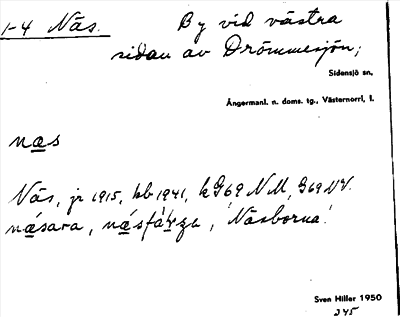 1-4 Näs. By vid västra
sidan av Drömmesjön;
Sidensjö sn,
Ångermanl. n. doms. tg., Västernorrl. l.
næs
Näs, jr 1915, kb 1941, kG69 NM, G69 NV.
næsara, 'Näsborna'.
Sven Hiller 1950
245